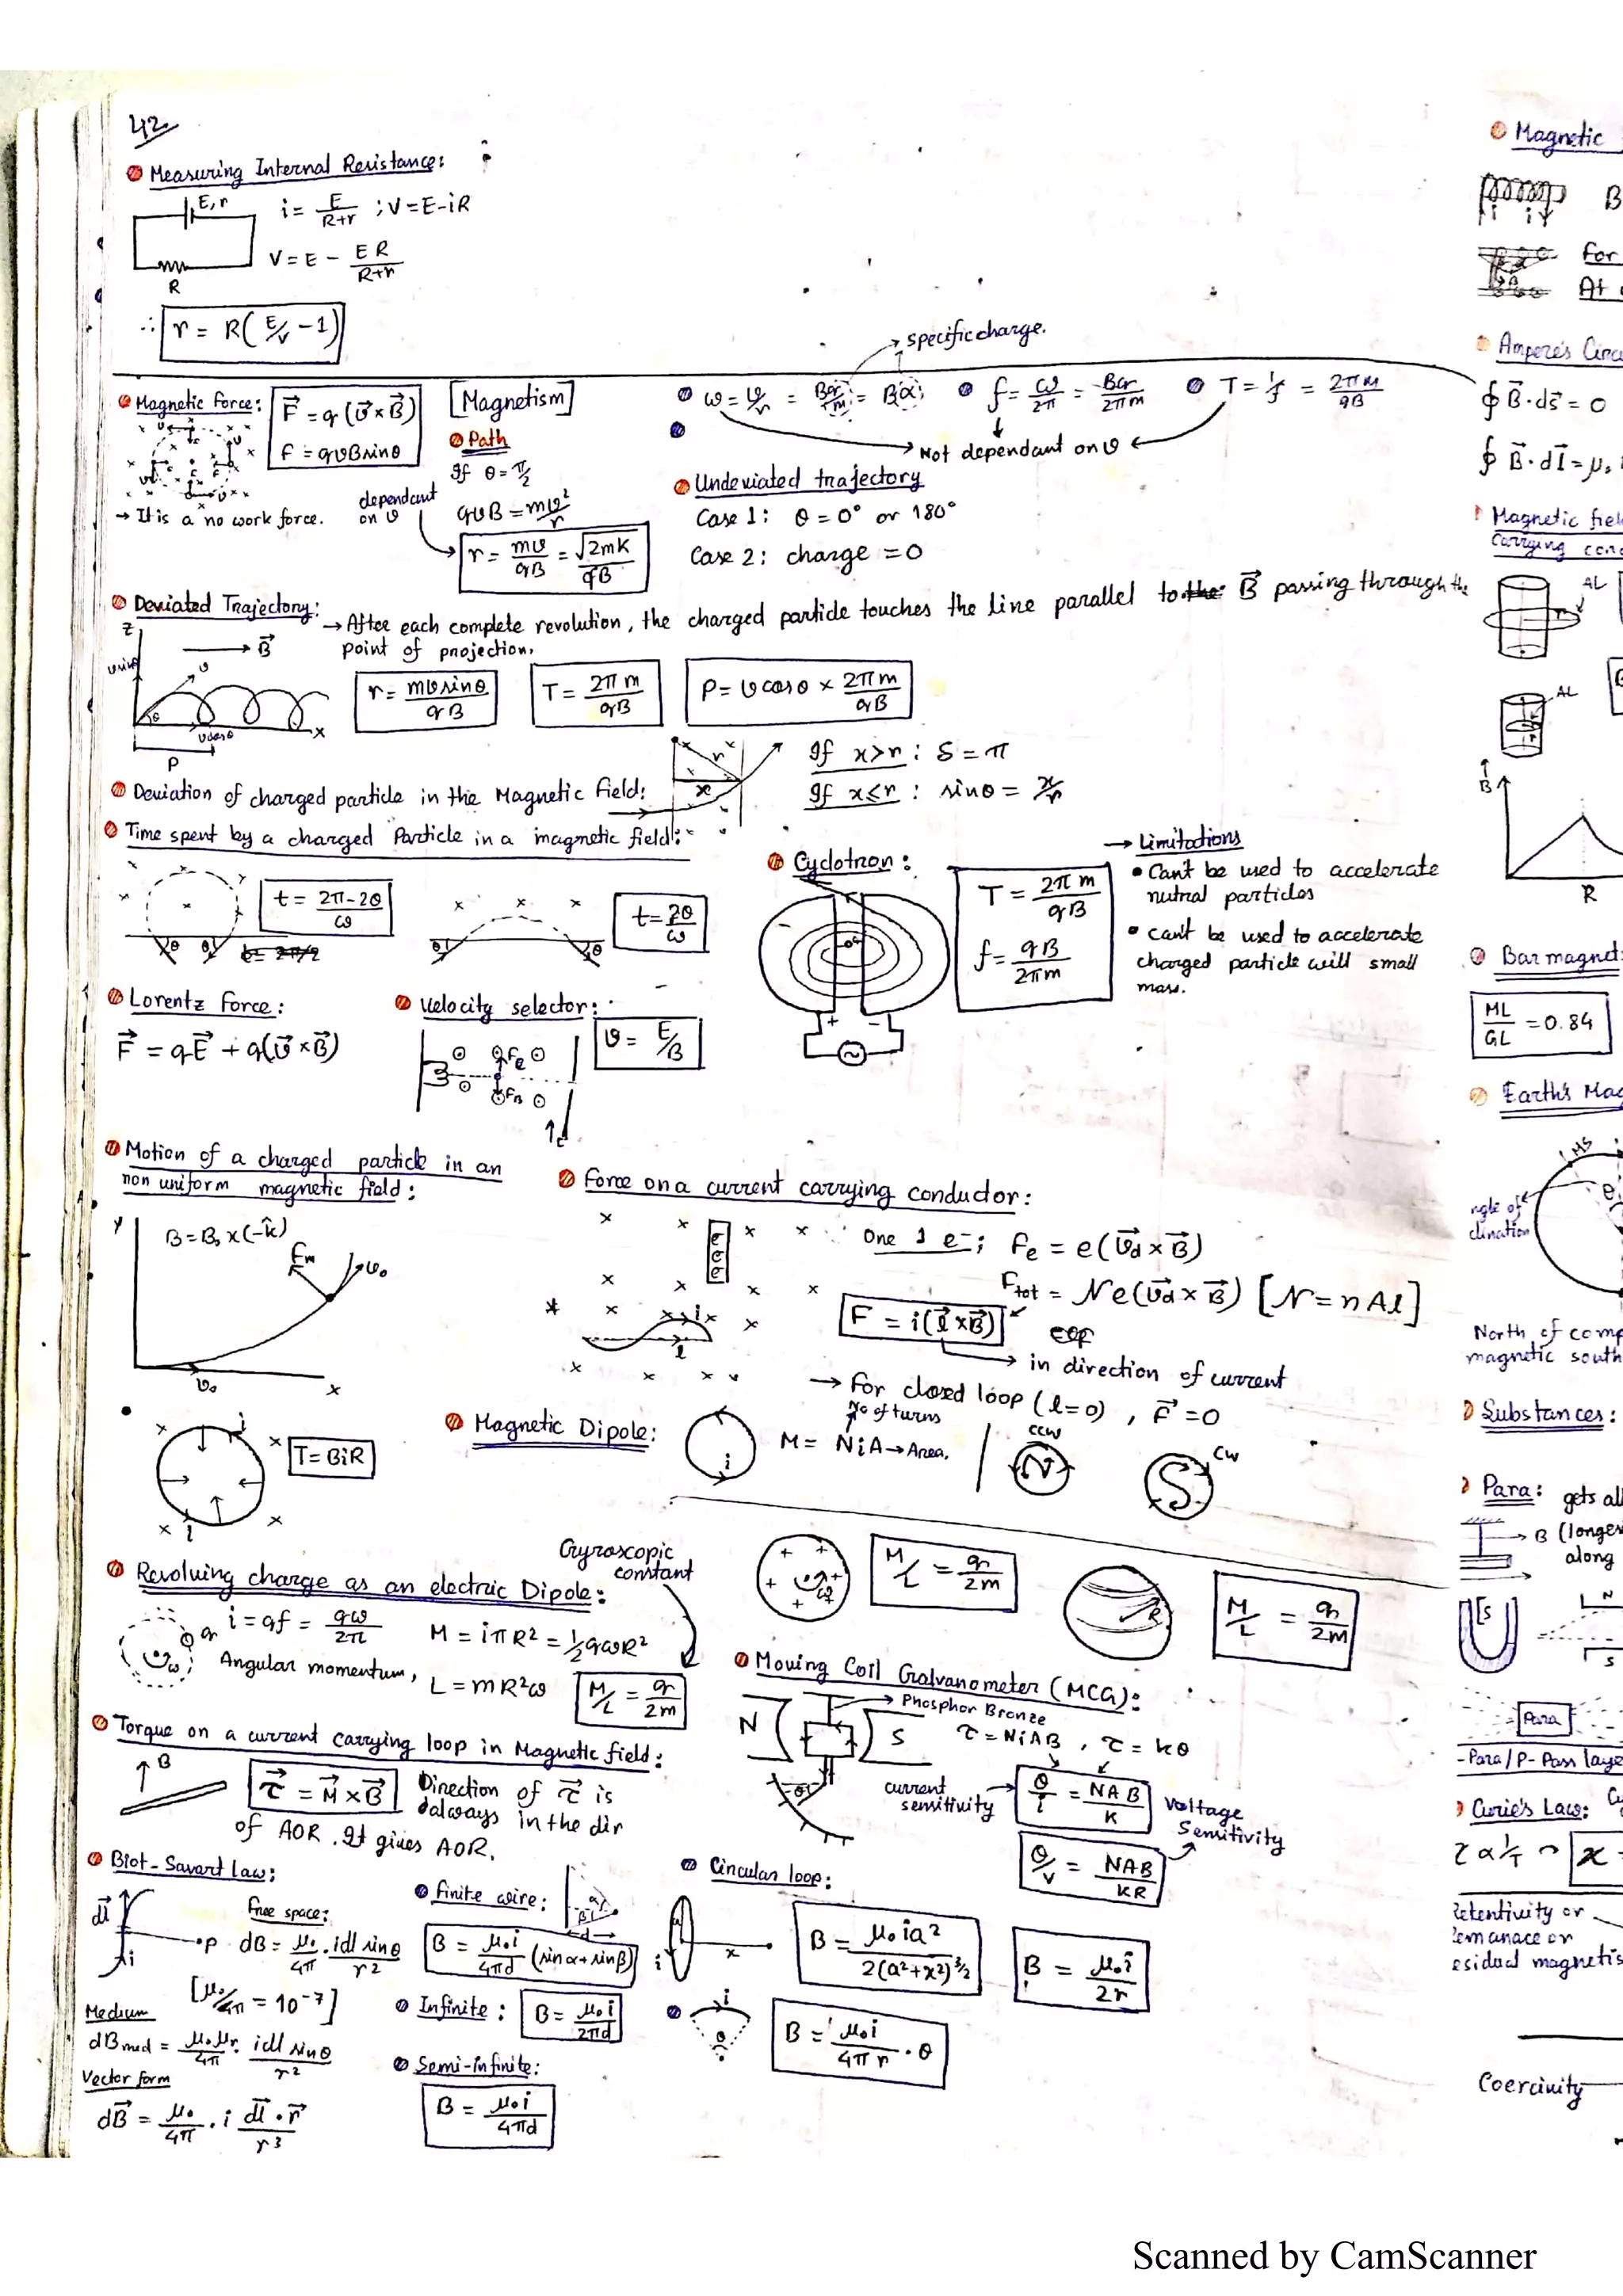 42
Measuring Internal Resistance:
E, r
R
i = E/(R+r) ; V = E-iR
V = E - ER/(R+r)
∴ r = R(E/V - 1)
→ specific charge.
Magnetic Force:
F⃗ = q(v⃗ × B⃗)
F = qvBsinθ
→ It is a no work force.
[Magnetism]
Path
If θ = π/2
qvB = mv²/r
dependant on v
r = mv/qB = √2mK/qB
ω = v/r = Bqr/rm = Bα
f = ω/2π = Bqr/2πm
T = 1/f = 2πm/qB
Not dependant on v
Undeviated trajectory
Case 1: θ = 0° or 180°
Case 2: charge = 0
Deviated Trajectory:
→ After each complete revolution, the charged particle touches the line parallel to the B⃗ passing through the
point of projection.
z
B⃗
v
θ
vcosθ
x
P
r = mvsinθ/qB
T = 2πm/qB
P = vcosθ × 2πm/qB
Deviation of charged particle in the Magnetic Field:
r
x
If x>r : δ = π
If x≤r : sinθ = x/r
Time spent by a charged Particle in a magnetic field:
t = (2π-2θ)/ω
θ θ
t = 2θ/ω
θ θ
Cyclotron:
+ -
T = 2πm/qB
f = qB/2πm
→ Limitations
• Can't be used to accelerate
nutral particles
• can't be used to accelerate
charged particle will small
mass.
Lorentz Force:
F⃗ = qE⃗ + q(v⃗ × B⃗)
Velocity selector:
Fe
FB
v = E/B
Motion of a charged particle in an
non uniform magnetic field:
B = B₀x(-k̂)
Y
Fm
v₀
v₀
x
Force on a current carrying conductor:
One 1 e⁻; Fe = e(v⃗d × B⃗)
Ftot = Ne(v⃗d × B⃗) [N = nAl]
F = i(l⃗ × B⃗)
→ in direction of current
→ For closed loop (l=0), F⃗ = 0
i
l
T = BiR
i
i
Magnetic Dipole:
i
No of turns
M = NiA → Area.
CCW
N
CW
S
Revolving charge as an electric Dipole:
Gyroscopic
constant
i = qf = qω/2π
M = iπR² = ½qωR²
Angular momentum, L = mR²ω
M/L = q/2m
M/L = q/2m
R
M/L = q/2m
Torque on a current carrying loop in Magnetic field:
B
τ⃗ = M⃗ × B⃗
Direction of τ⃗ is
always in the dir
of AOR. It gives AOR.
Moving Coil Galvanometer (MCG):
→ Phosphor Bronze
N S
τ = NiAB , τ = kθ
current
sensitivity
θ/i = NAB/K
Voltage
Sensitivity
θ/V = NAB/KR
Biot-Savart Law:
dl⃗
P
i
Free space:
dB = μ₀/4π . idl sinθ/r²
[μ₀/4π = 10⁻⁷]
Medium
dBmed = μ₀μr/4π . idl sinθ/r²
Vector form
dB⃗ = μ₀/4π . i dl⃗ . r⃗/r³
Finite wire:
α
β
d
B = μ₀i/4πd (sinα + sinβ)
Infinite:
B = μ₀i/2πd
Semi-infinite:
B = μ₀i/4πd
Circular loop:
i
x
B = μ₀ia²/2(a²+x²)^3/2
B = μ₀i/2r
i
θ
B = μ₀i/4πr . θ
Magnetic
B
i i
For
At
Ampere's Circu
∮ B⃗.ds⃗ = 0
∮ B⃗.dl⃗ = μ₀
Magnetic fiel
Carrying con
AL
r
AL
B
R
Bar magnet
ML/GL = 0.84
Earth's Mag
MS
ngle of
clination
North of comp
magnetic south
Substances:
Para: gets al
→ B (longer
along
S
N
S
Para
-Para/P- Pass laye
Curie's Law:
Retentivity or
emanace or
esidual magnetis
Coercivity
Scanned by CamScanner